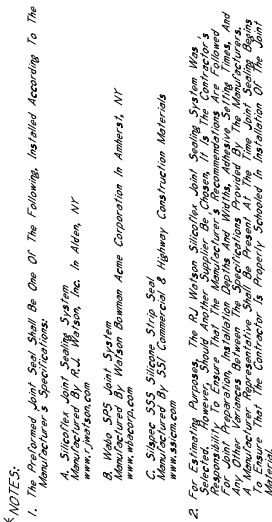 NOTES:
1. The Preformed Joint Seal Shall Be One Of The Following, Installed According To The
Manufacturer's Specifications:
A. Silicoflex Joint Sealing System
Manufactured By R.J. Watson, Inc. In Alden, NY
www.rjwatson.com
B. Wabo SPS Joint System
Manufactured By Watson Bowman Acme Corporation In Amherst, NY
www.wbacorp.com
C. Silspec SSS Silicone Strip Seal
Manufactured By SSI Commercial & Highway Construction Materials
www.ssicm.com
2. For Estimating Purposes, The RJ Watson Silicoflex Joint Sealing System Was
Selected. However, Should Another Supplier Be Chosen, It Is The Contractor's
Responsibility To Ensure That The Manufacturer's Recommendations Are Followed
Any Joint Preparation, Installation Depths And Widths, Adhesive Setting Times, And
Any Other Variances Between The Specifications Provided By The Manufacturers.
A Manufacturer Representative Shall Be Present At The Time Joint Sealing Begins
To Ensure That The Contractor Is Properly Schooled In Installation Of The Joint
Material.